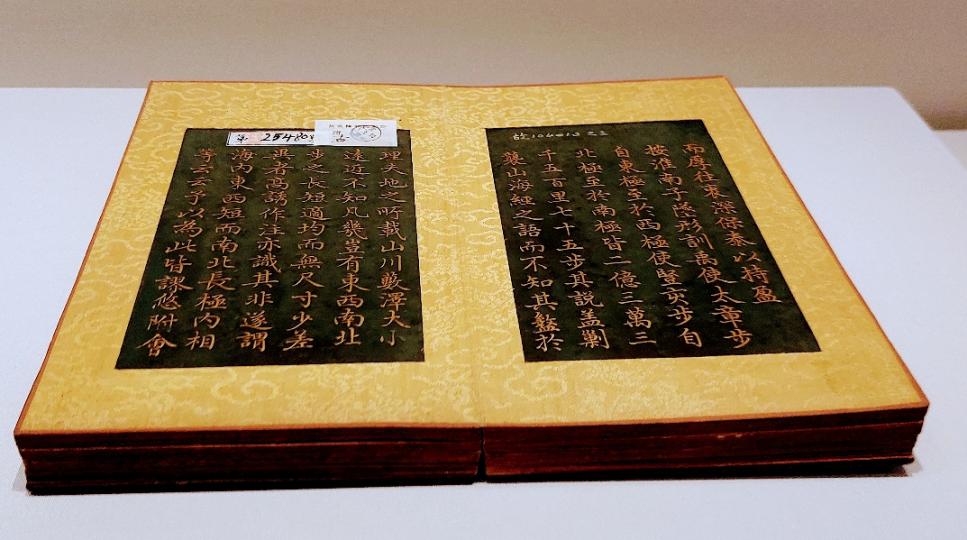 而厚往衷深保泰以持盈
按淮南子墬形訓禹使太章步
自東極至於西極使豎亥步自
北極至於南極皆二億三萬三
千五百里七十五步其說蓋剿
襲山海經之語而不知其盭於
理夫地之所載山川藪澤大小
遠近不知凡幾豈有東西南北
步之長短適均而無尺寸少差
異者高誘作注亦識其非遂謂
海內東西短而南北長極內相
等云云予以為此皆謬悠附會